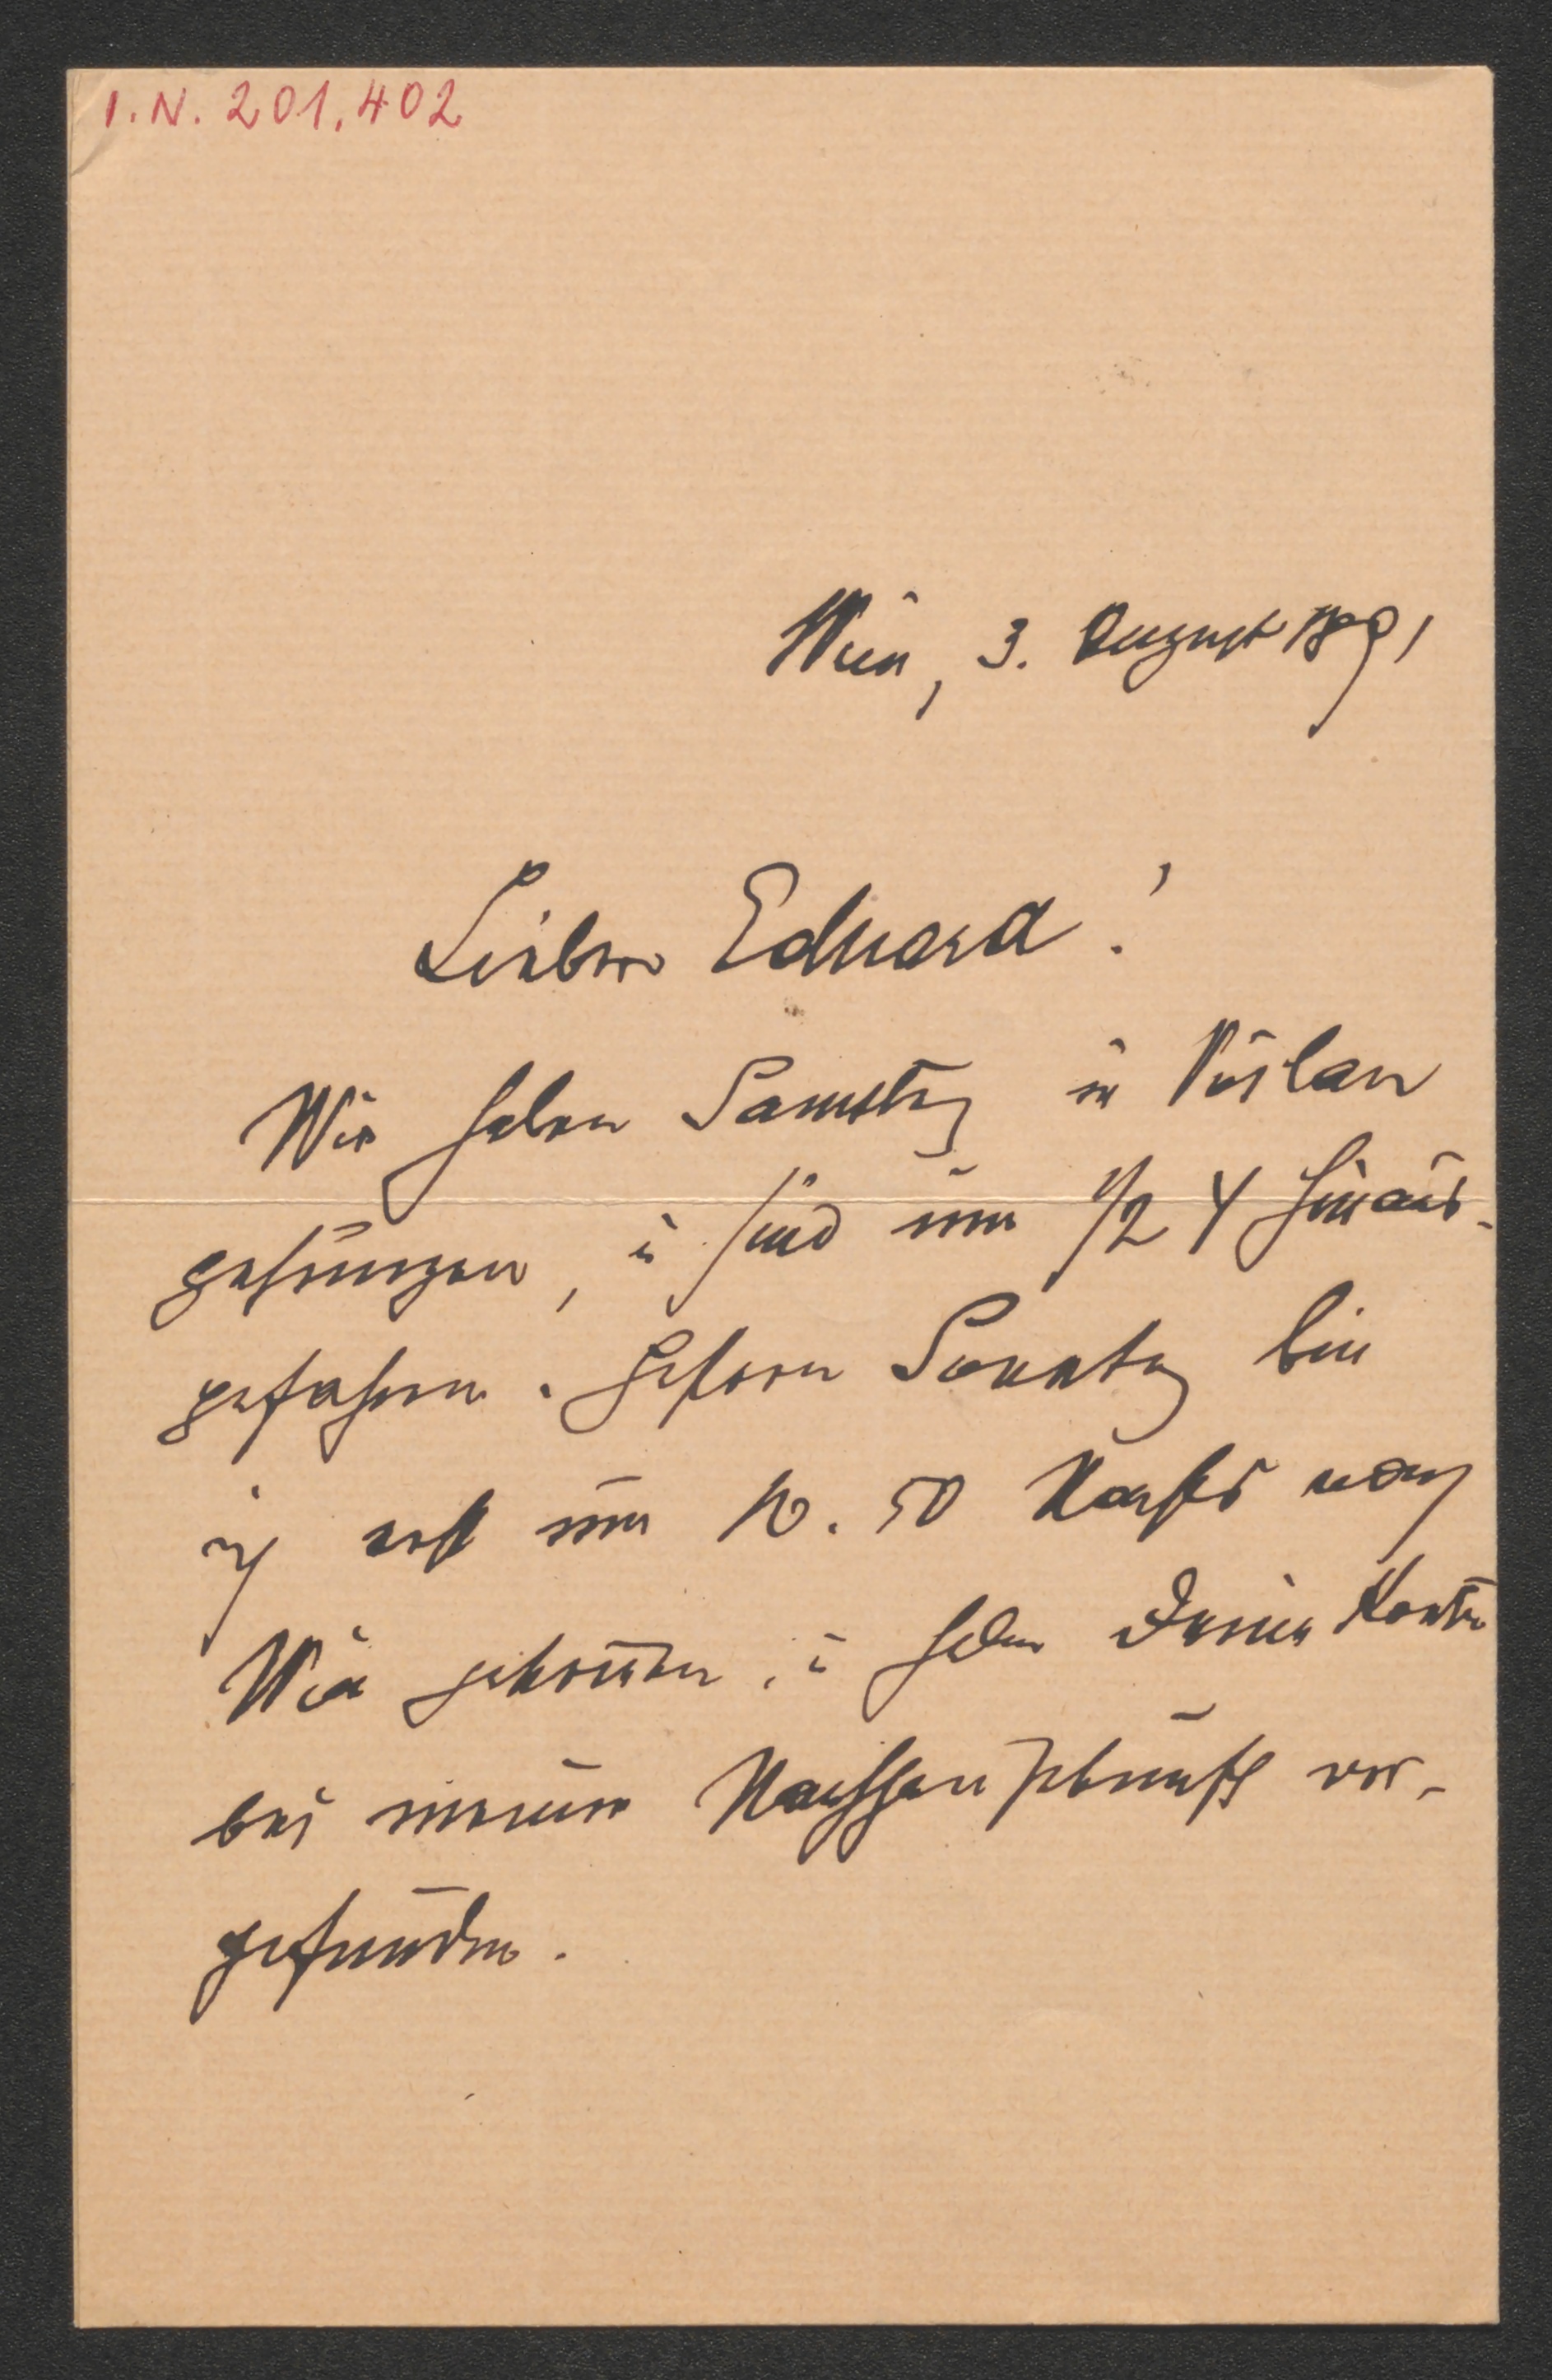 I.N. 201.402
Wien, 3. August 1891
Lieber Eduard!
Wir haben Samstag in Vöslau
gesungen, u. sind um 1/2 4 hinaus-
gefahren. Gestern Sonntag bin
ich erst um 10.50 Nachts nach
Wien gekommen, u. habe Deine Karte
bei meiner Nachhausekunft vor-
gefunden.